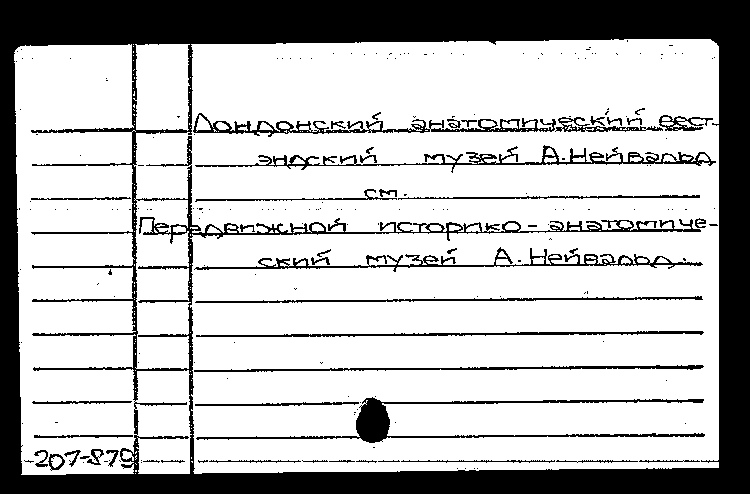 Лондонский анатомический вест-
эндский музей А.Нейвальд
см.
Передвижной историко-анатомиче-
ский музей А.Нейвальд.
207-879